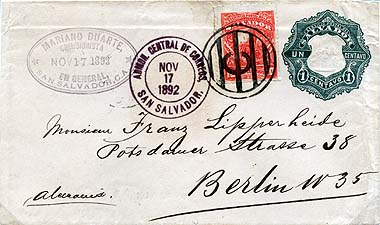 MARIANO DUARTE,
COMISIONISTA
NOV 17 1892
EN GENERAL,
SAN SALVADOR, C.A.
ADMON. CENTRAL DE CORREOS,
NOV
17
1892
SAN SALVADOR.
SALVADOR
UN CENTAVO
1 1
CENTAVO
Monsieur Franz Lipperheide
Potsdamer Strasse 38
Berlin W 35
Alemania.